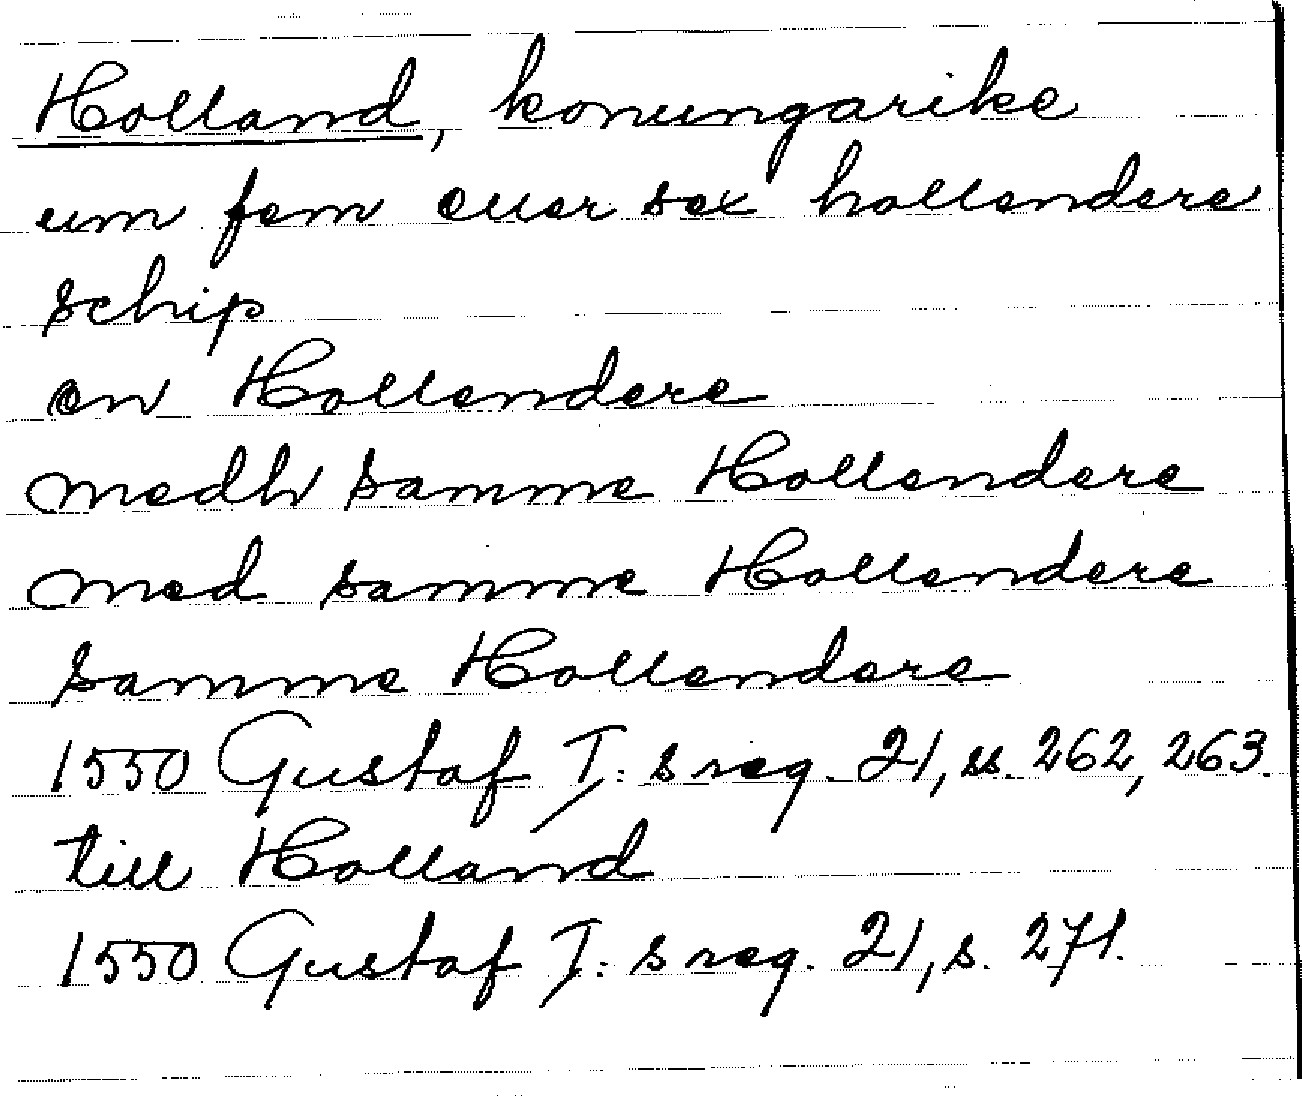 Holland, konungarike
um fem eller sex hollendere
schip
en Hollendere
medh samme Hollendere
med samme Hollendere
samme Hollendere
1550 Gustaf I:s reg. 21, ss. 262, 263.
till Holland
1550 Gustaf I:s reg. 21, s. 271.